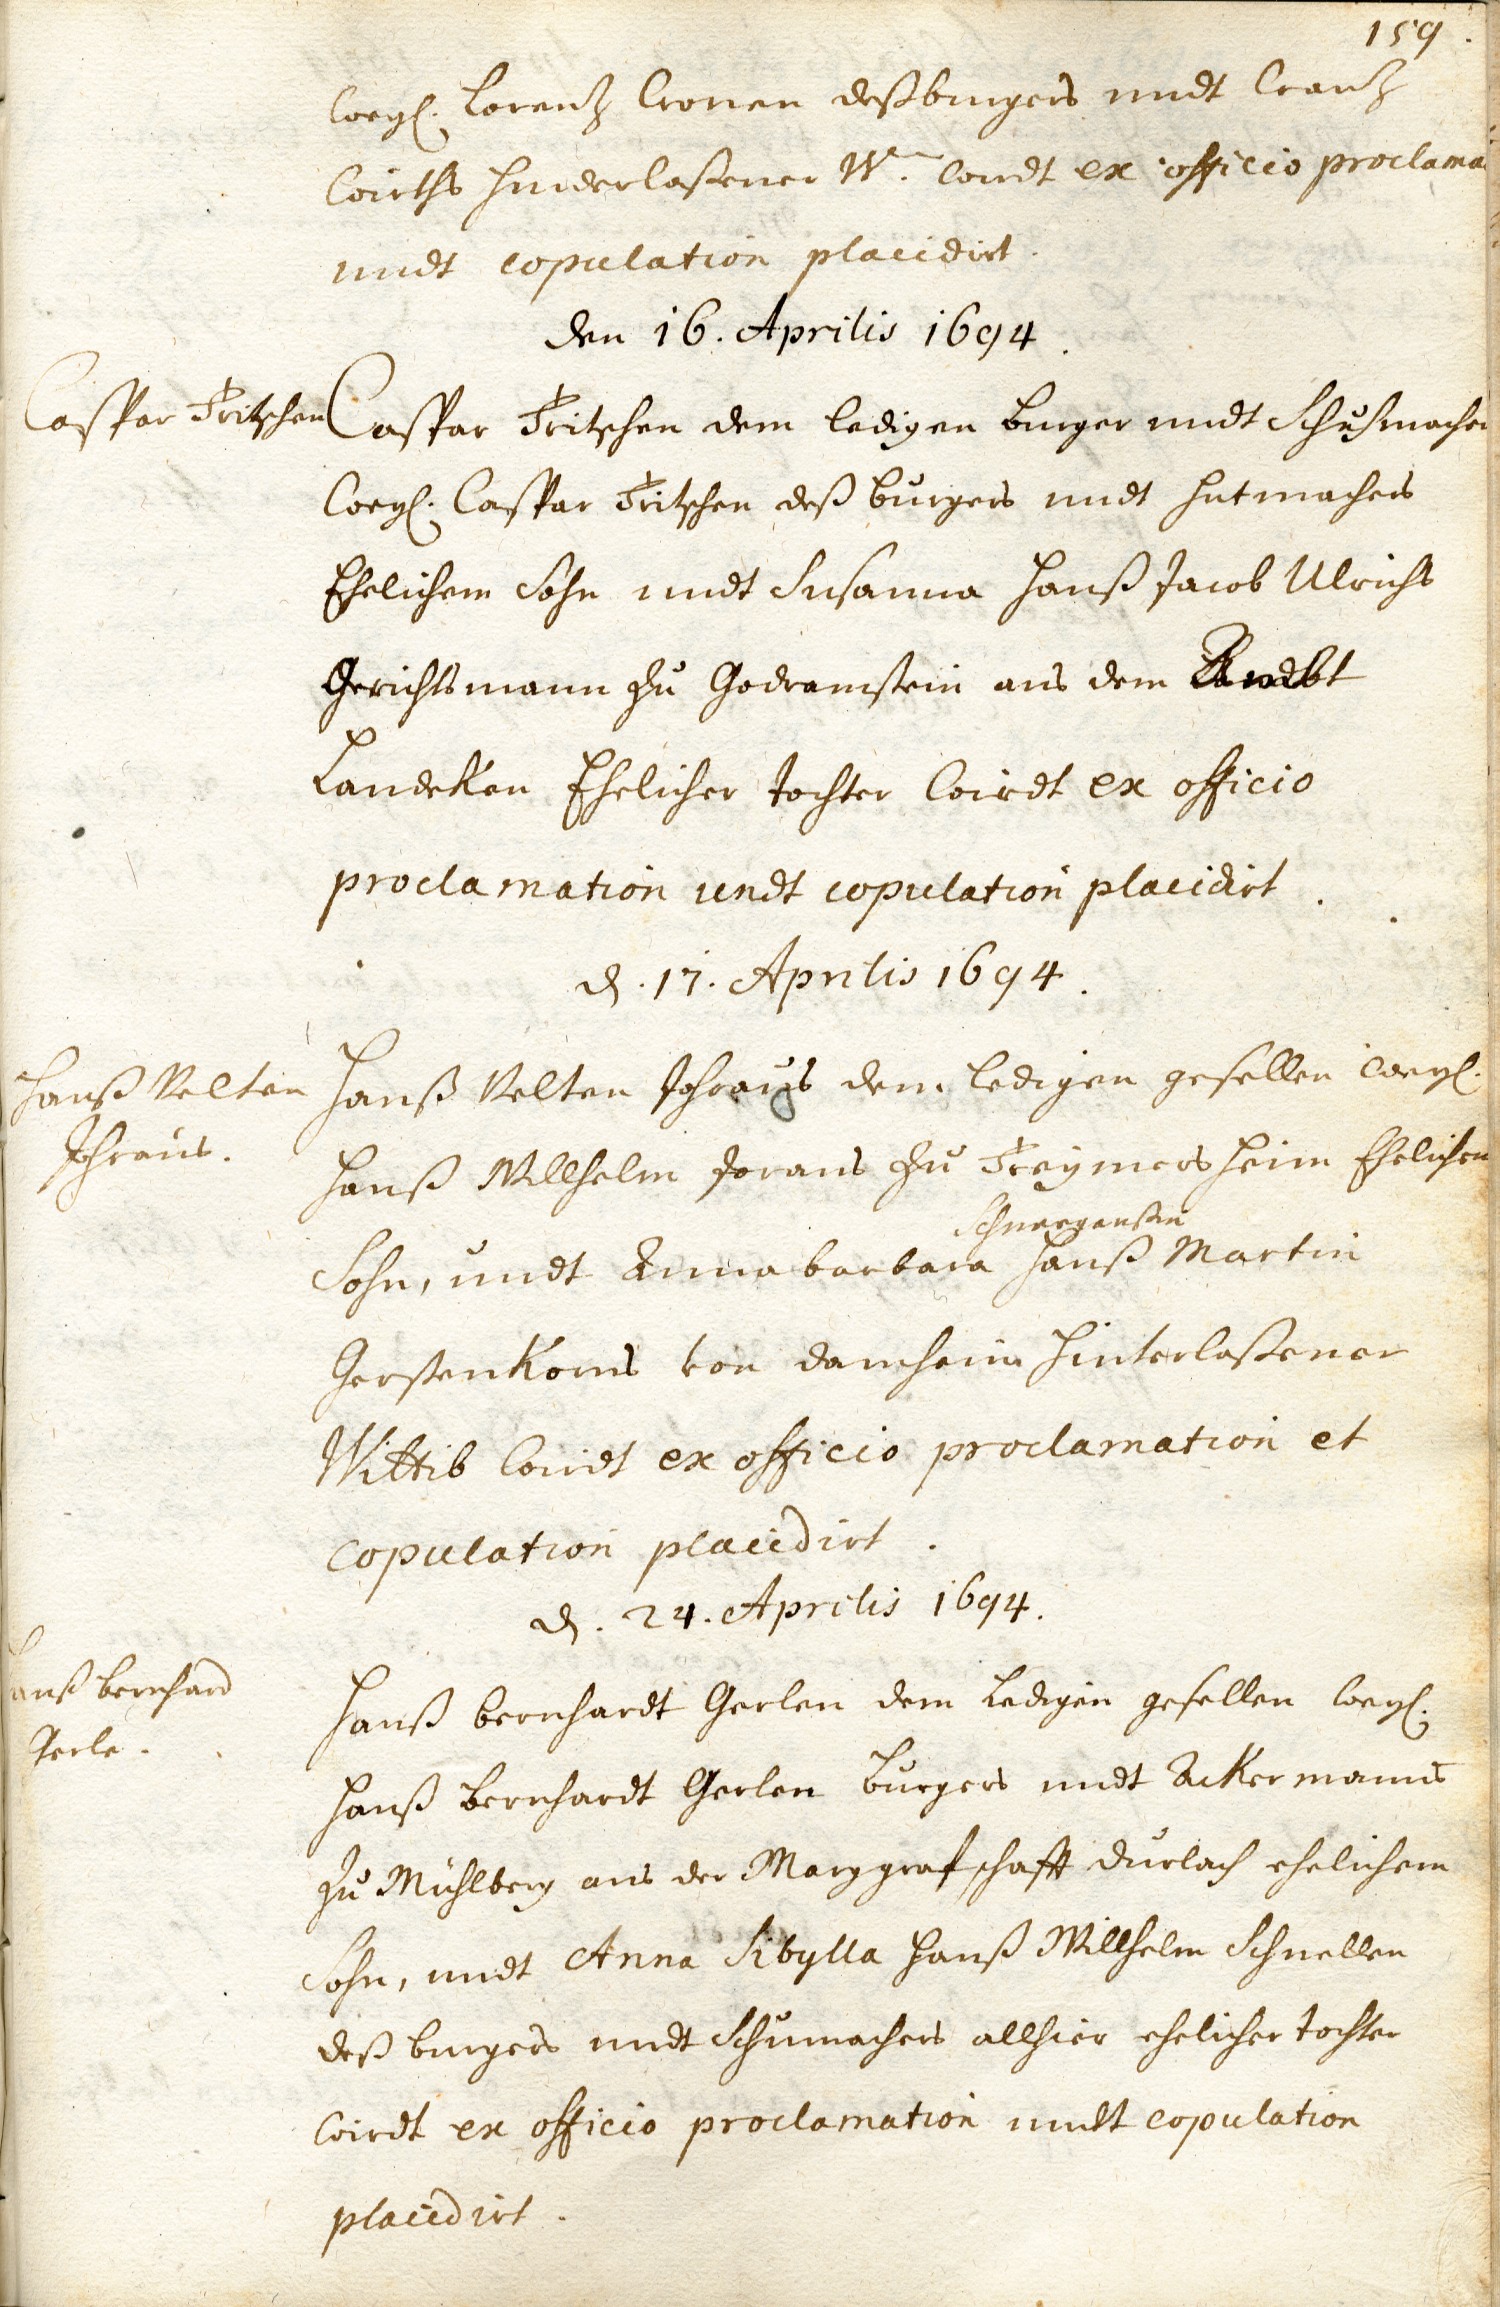 159.
weyl. Lorentz Cronen deß burgers undt Crantz
wirths hinderlaßener W. wirdt ex officio proclama
undt copulation placidirt.
den 16. Aprilis 1694.
Caspar Fritschen
Caspar Fritschen dem ledigen burger undt Schuhmacher
weyl. Caspar Fritschen deß burgers undt hutmachers
Ehelichem Sohn undt Susanna Hanß Jacob Ulrichs
Gerichtsmann zu Godramstein aus dem
Landeken Ehelicher tochter wirdt ex officio
proclamation undt copulation placidirt.
d. 17. Aprilis 1694.
Hanß Velten
Johraus.
Hanß Velten Johraus dem ledigen gesellen weyl.
Hanß Willhelm Joraus zu Freymersheim Ehelichen
Schneeganßin
Sohn, undt Anna barbara Hanß Martin
Gerstenkorns von damheim hinterlaßener
Wittib wirdt ex officio proclamation et
copulation placidirt.
d. 24. Aprilis 1694.
Hanß bernhard
Gerle.
Hanß bernhardt Gerlen dem Ledigen gesellen weyl.
Hanß bernhardt Gerlen burgers undt Ackermanns
zu Mühlberg aus der Marggrafschafft durlach ehelichem
Sohn, undt Anna Sibylla Hanß Willhelm Schnellen
deß burgers undt Schumachers allhier ehelicher tochter
wirdt ex officio proclamation undt copulation
placidirt.